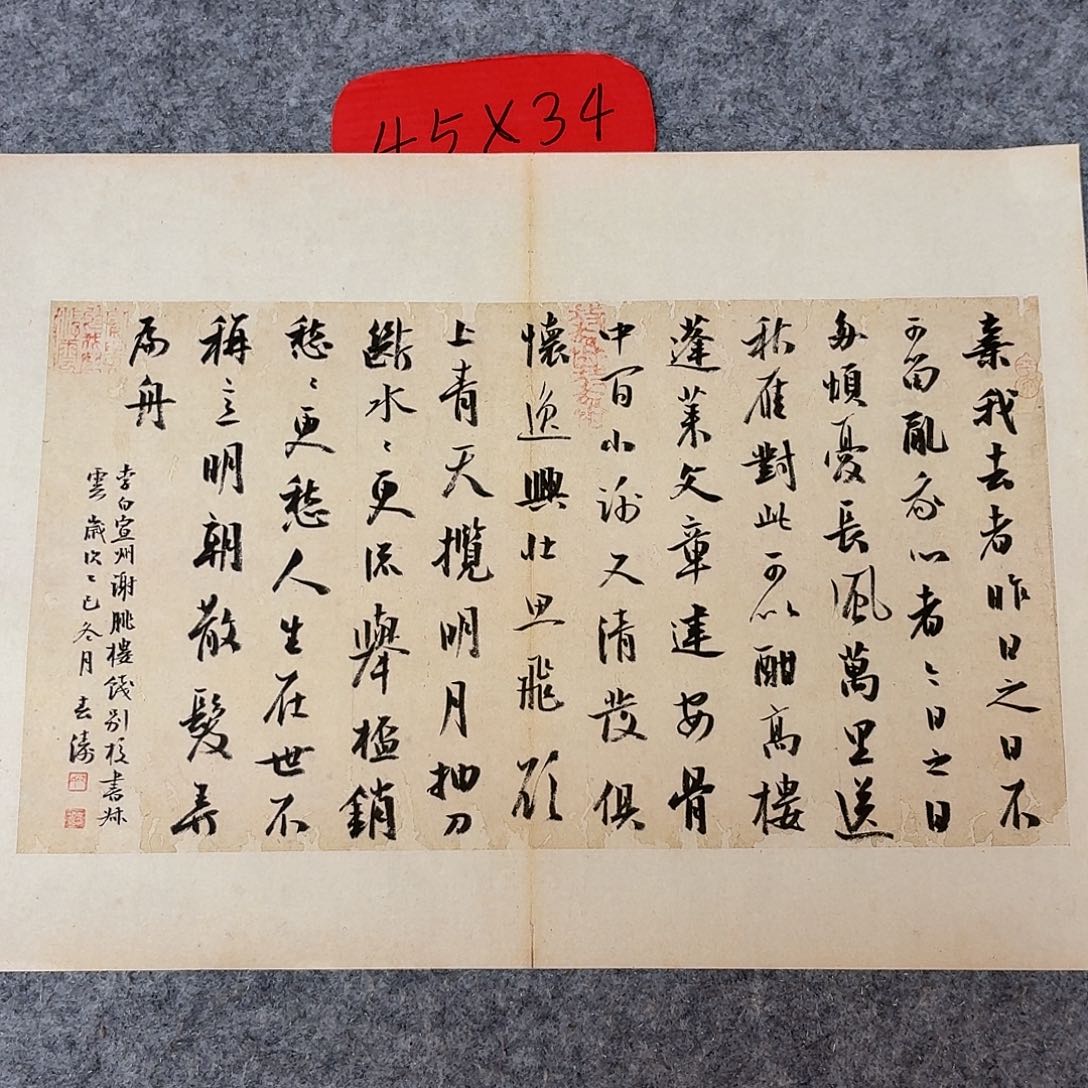 45×34
棄我去者昨日之日不
可留亂我心者今日之日
多煩憂長風萬里送
秋雁對此可以酣高樓
蓬萊文章建安骨
中間小謝又清發俱
懷逸興壯思飛欲
上青天攬明月抽刀
斷水〻更流舉杯銷
愁〻更愁人生在世不
稱意明朝散髮弄
扁舟
李白宣州謝朓樓餞別校書叔
雲 歲次乙巳冬月